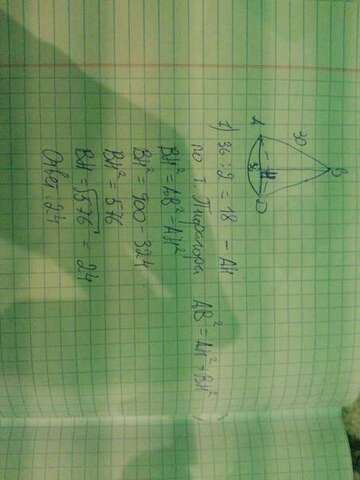 B
30
A
H
D
36
1) 36 : 2 = 18 - AH
по Т. Пифагора AB² = AH² + BH²
BH² = AB² - AH²
BH² = 900 - 324
BH² = 576
BH = √576 = 24
Ответ 24